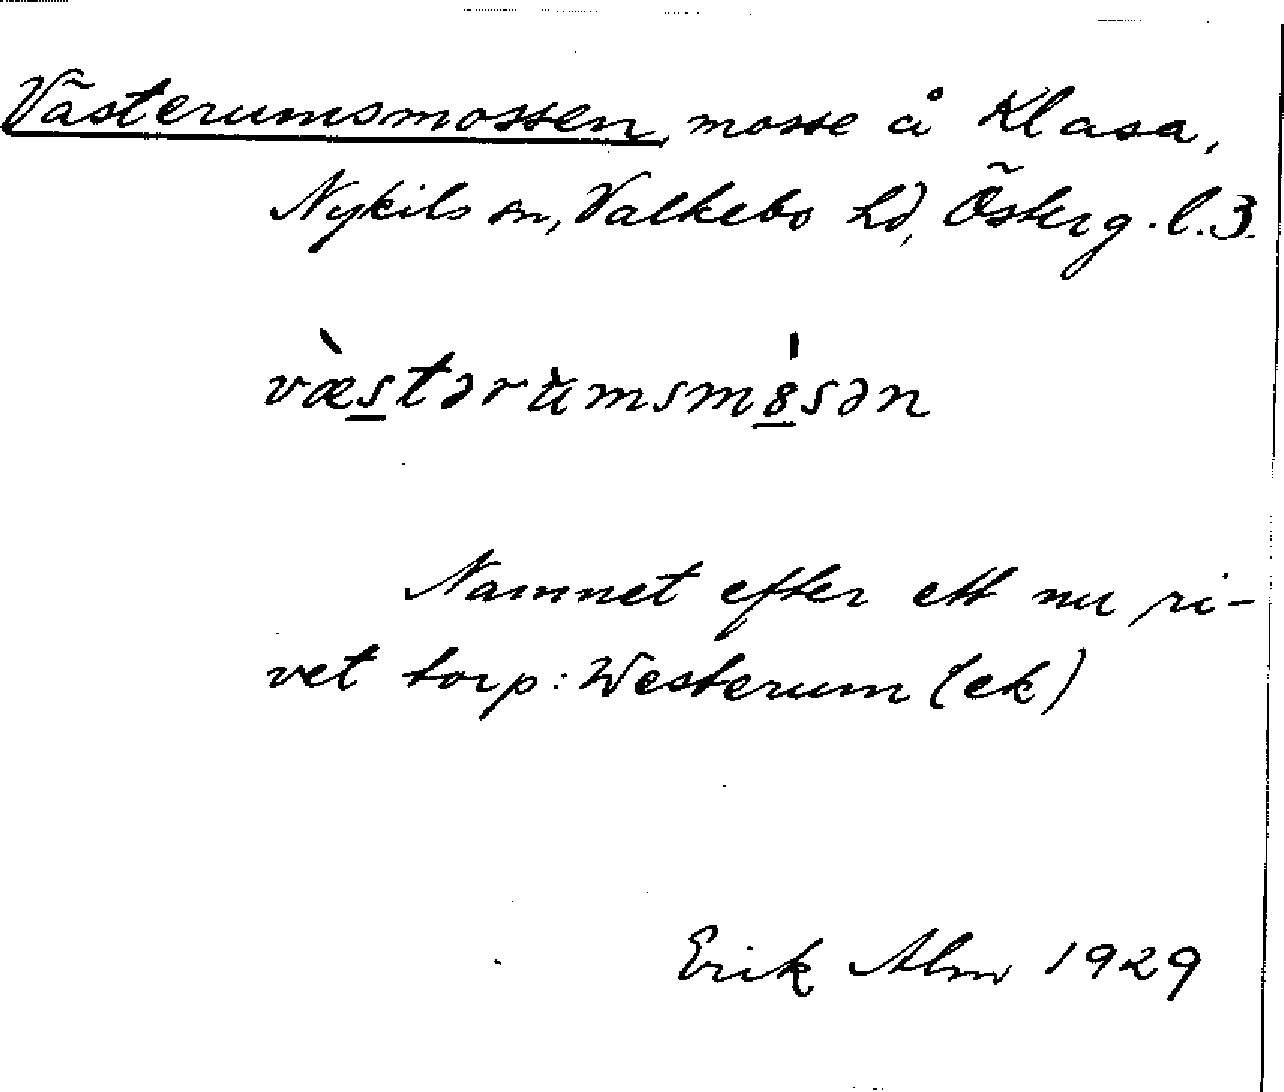 Västerumsmossen, mosse å Klasa,
Nykils sn, Valkebo hd, Österg. l. 3.
væ̀stərùmsmȣ́sən
Namnet efter ett nu ri-
vet torp: Westerum (ek)
Erik Alm 1929